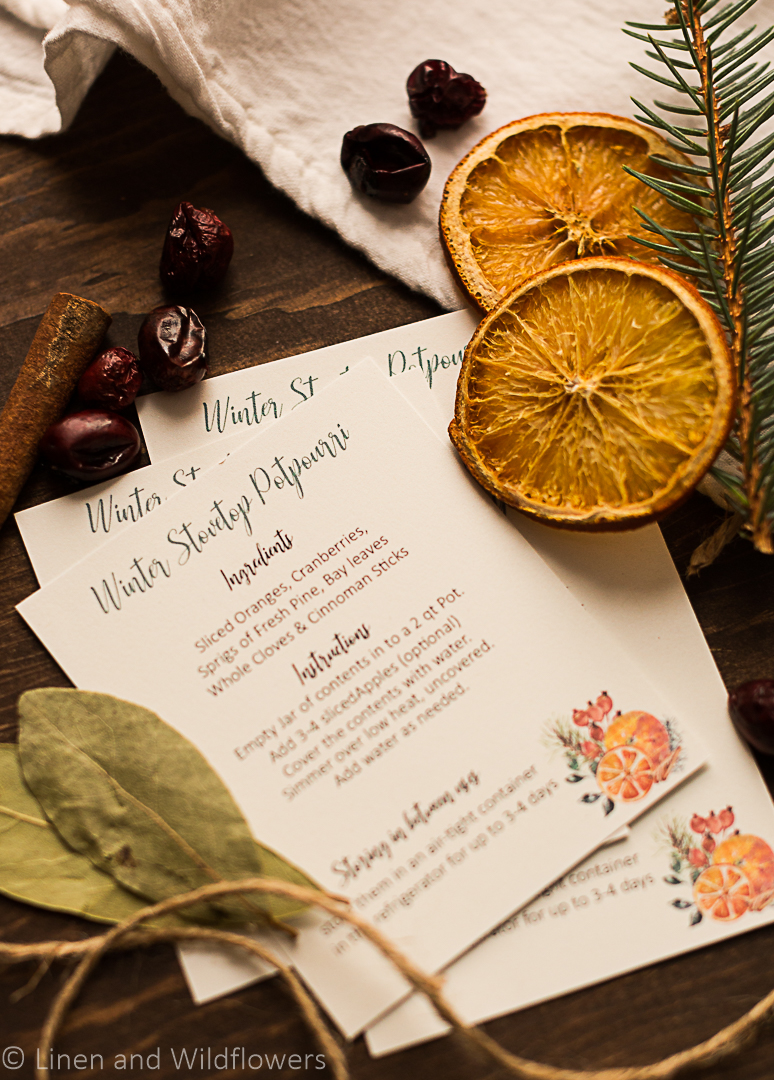 Winter St
Potpou
Winter St
Winter Stovetop Potpourri
Ingredients
Sliced Oranges, Cranberries,
Sprigs of Fresh Pine, Bay leaves
Whole Cloves & Cinnoman Sticks
Instructions
Empty Jar of contents in to a 2 qt Pot.
Add 3-4 slicedApples (optional)
Cover the contents with water.
Simmer over low heat, uncovered.
Add water as needed.
Storing in between
them in an air-tight container
in the refrigerator for up to 3-4 days
ght container
for up to 3-4 days
© Linen and Wildflowers